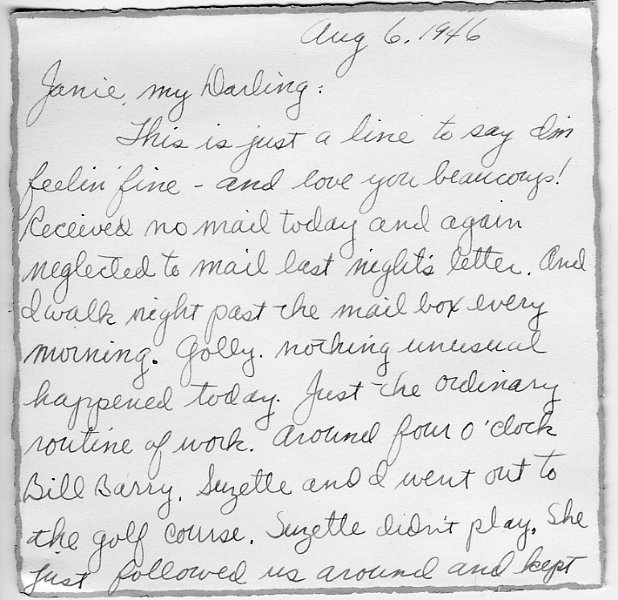 Aug 6, 1946
Janie, my Darling:
This is just a line to say I'm
feelin' fine - and love you beaucoups!
Received no mail today and again
neglected to mail last night's letter. And
I walk right past the mail box every
morning. Golly. nothing unusual
happened today. Just the ordinary
routine of work. Around four o'clock
Bill Barry, Suzette and I went out to
the golf course. Suzette didn't play. She
just followed us around and kept